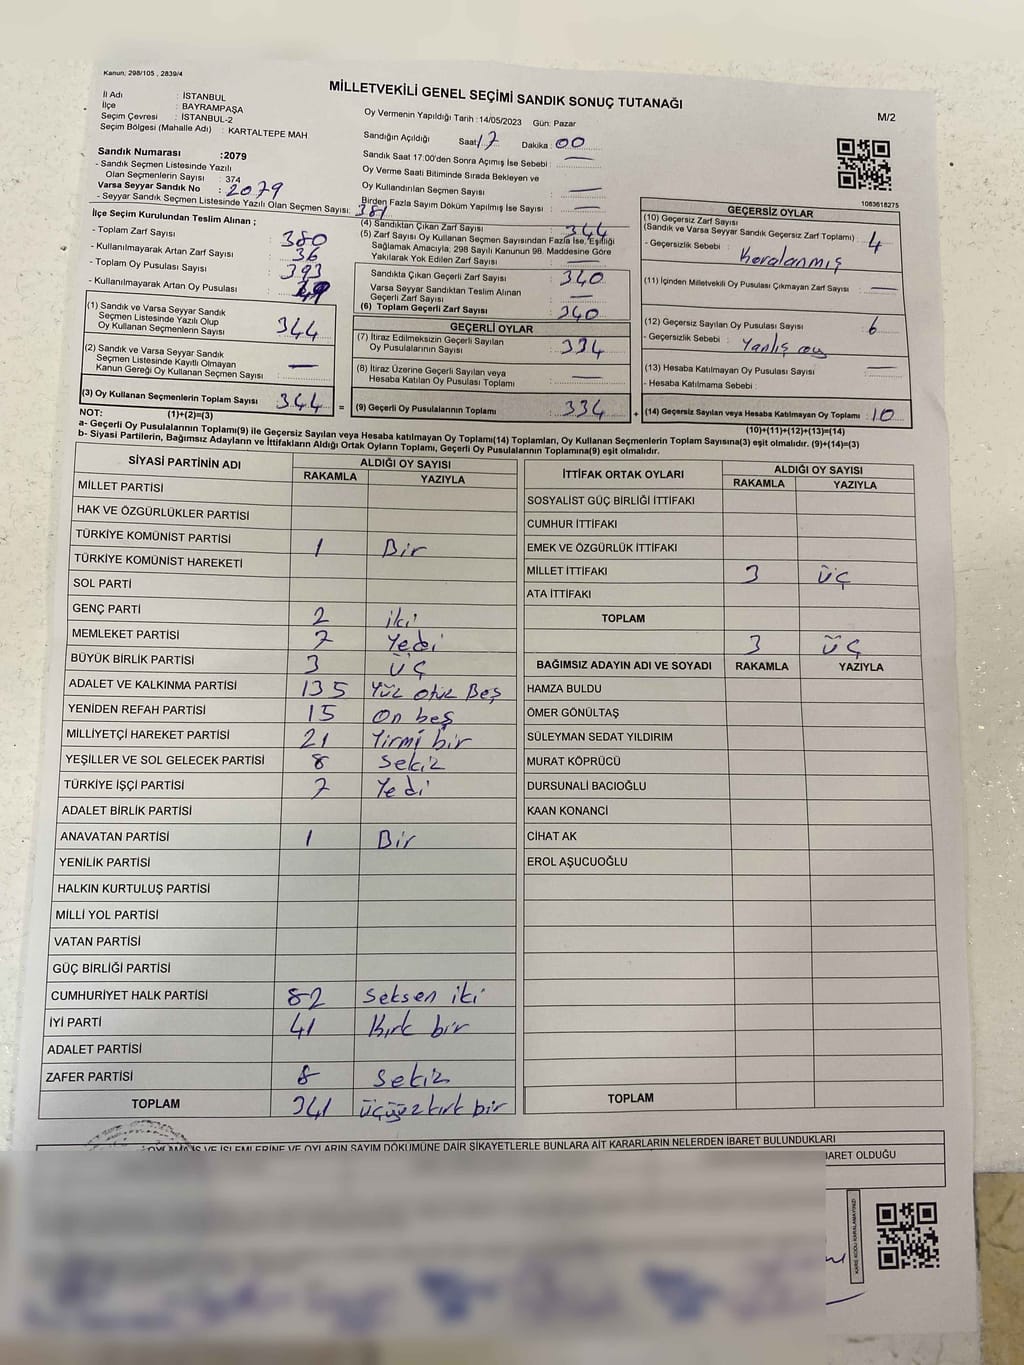 Kanun; 298/105 , 2839/4
MİLLETVEKİLİ GENEL SEÇİMİ SANDIK SONUÇ TUTANAĞI
M/2
İl Adı : İSTANBUL
İlçe : BAYRAMPAŞA
Seçim Çevresi : İSTANBUL-2
Seçim Bölgesi (Mahalle Adı) : KARTALTEPE MAH
Sandık Numarası :2079
- Sandık Seçmen Listesinde Yazılı
Olan Seçmenlerin Sayısı : 374
Varsa Seyyar Sandık No : 2079
- Seyyar Sandık Seçmen Listesinde Yazılı Olan Seçmen Sayısı: 381
Oy Vermenin Yapıldığı Tarih :14/05/2023 Gün: Pazar
Sandığın Açıldığı Saat: 17 Dakika : 00
Sandık Saat 17:00'den Sonra Açımış İse Sebebi : —
Oy Verme Saati Bitiminde Sırada Bekleyen ve
Oy Kullandırılan Seçmen Sayısı : —
Birden Fazla Sayım Döküm Yapılmış İse Sayısı : —
1083618275
İlçe Seçim Kurulundan Teslim Alınan ;
- Toplam Zarf Sayısı : 380
- Kullanılmayarak Artan Zarf Sayısı : 36
- Toplam Oy Pusulası Sayısı : 393
- Kullanılmayarak Artan Oy Pusulası : 49
(1) Sandık ve Varsa Seyyar Sandık
Seçmen Listesinde Yazılı Olup
Oy Kullanan Seçmenlerin Sayısı : 344
(2) Sandık ve Varsa Seyyar Sandık
Seçmen Listesinde Kayıtlı Olmayan
Kanun Gereği Oy Kullanan Seçmen Sayısı : —
(3) Oy Kullanan Seçmenlerin Toplam Sayısı : 344
(1)+(2)=(3)
(4) Sandıktan Çıkan Zarf Sayısı : 344
(5) Zarf Sayısı Oy Kullanan Seçmen Sayısından Fazla İse, Eşitliği
Sağlamak Amacıyla, 298 Sayılı Kanunun 98. Maddesine Göre
Yakılarak Yok Edilen Zarf Sayısı : —
Sandıkta Çıkan Geçerli Zarf Sayısı : 340
Varsa Seyyar Sandıktan Teslim Alınan
Geçerli Zarf Sayısı : —
(6) Toplam Geçerli Zarf Sayısı : 340
GEÇERLİ OYLAR
(7) İtiraz Edilmeksizin Geçerli Sayılan
Oy Pusulalarının Sayısı : 334
(8) İtiraz Üzerine Geçerli Sayılan veya
Hesaba Katılan Oy Pusulası Toplamı : —
= (9) Geçerli Oy Pusulalarının Toplamı : 334
GEÇERSİZ OYLAR
(10) Geçersiz Zarf Sayısı
(Sandık ve Varsa Seyyar Sandık Geçersiz Zarf Toplamı) : 4
- Geçersizlik Sebebi : Karalanmış
(11) İçinden Milletvekili Oy Pusulası Çıkmayan Zarf Sayısı : —
(12) Geçersiz Sayılan Oy Pusulası Sayısı : 6
- Geçersizlik Sebebi : Yanlış oy
(13) Hesaba Katılmayan Oy Pusulası Sayısı : —
- Hesaba Katılmama Sebebi :
+ (14) Geçersiz Sayılan veya Hesaba Katılmayan Oy Toplamı : 10
(10)+(11)+(12)+(13)=(14)
NOT:
a- Geçerli Oy Pusulalarının Toplamı(9) ile Geçersiz Sayılan veya Hesaba katılmayan Oy Toplamı(14) Toplamları, Oy Kullanan Seçmenlerin Toplam Sayısına(3) eşit olmalıdır. (9)+(14)=(3)
b- Siyasi Partilerin, Bağımsız Adayların ve İttifakların Aldığı Ortak Oyların Toplamı, Geçerli Oy Pusulalarının Toplamına(9) eşit olmalıdır.
SİYASİ PARTİNİN ADI ALDIĞI OY SAYISI
RAKAMLA YAZIYLA
MİLLET PARTİSİ
HAK VE ÖZGÜRLÜKLER PARTİSİ
TÜRKİYE KOMÜNİST PARTİSİ 1 Bir
TÜRKİYE KOMÜNİST HAREKETİ
SOL PARTİ
GENÇ PARTİ 2 iki
MEMLEKET PARTİSİ 7 Yedi
BÜYÜK BİRLİK PARTİSİ 3 ÜÇ
ADALET VE KALKINMA PARTİSİ 135 Yüz otuz Beş
YENİDEN REFAH PARTİSİ 15 On beş
MİLLİYETÇİ HAREKET PARTİSİ 21 Yirmi bir
YEŞİLLER VE SOL GELECEK PARTİSİ 8 Sekiz
TÜRKİYE İŞÇİ PARTİSİ 7 Yedi
ADALET BİRLİK PARTİSİ
ANAVATAN PARTİSİ 1 Bir
YENİLİK PARTİSİ
HALKIN KURTULUŞ PARTİSİ
MİLLİ YOL PARTİSİ
VATAN PARTİSİ
GÜÇ BİRLİĞİ PARTİSİ
CUMHURİYET HALK PARTİSİ 82 Seksen iki
İYİ PARTİ 41 Kırk bir
ADALET PARTİSİ
ZAFER PARTİSİ 8 Sekiz
TOPLAM 341 üçyüz kırk bir
İTTİFAK ORTAK OYLARI ALDIĞI OY SAYISI
RAKAMLA YAZIYLA
SOSYALİST GÜÇ BİRLİĞİ İTTİFAKI
CUMHUR İTTİFAKI
EMEK VE ÖZGÜRLÜK İTTİFAKI
MİLLET İTTİFAKI 3 ÜÇ
ATA İTTİFAKI
TOPLAM 3 ÜÇ
BAĞIMSIZ ADAYIN ADI VE SOYADI RAKAMLA YAZIYLA
HAMZA BULDU
ÖMER GÖNÜLTAŞ
SÜLEYMAN SEDAT YILDIRIM
MURAT KÖPRÜCÜ
DURSUNALİ BACIOĞLU
KAAN KONANCİ
CİHAT AK
EROL AŞUCUOĞLU
TOPLAM
OYLAMA İŞ VE İŞLEMLERİNE VE OYLARIN SAYIM DÖKÜMÜNE DAİR ŞİKAYETLERLE BUNLARA AİT KARARLARIN NELERDEN İBARET BULUNDUKLARI
BARET OLDUĞU
KARE KODU KARALAMAYINIZ